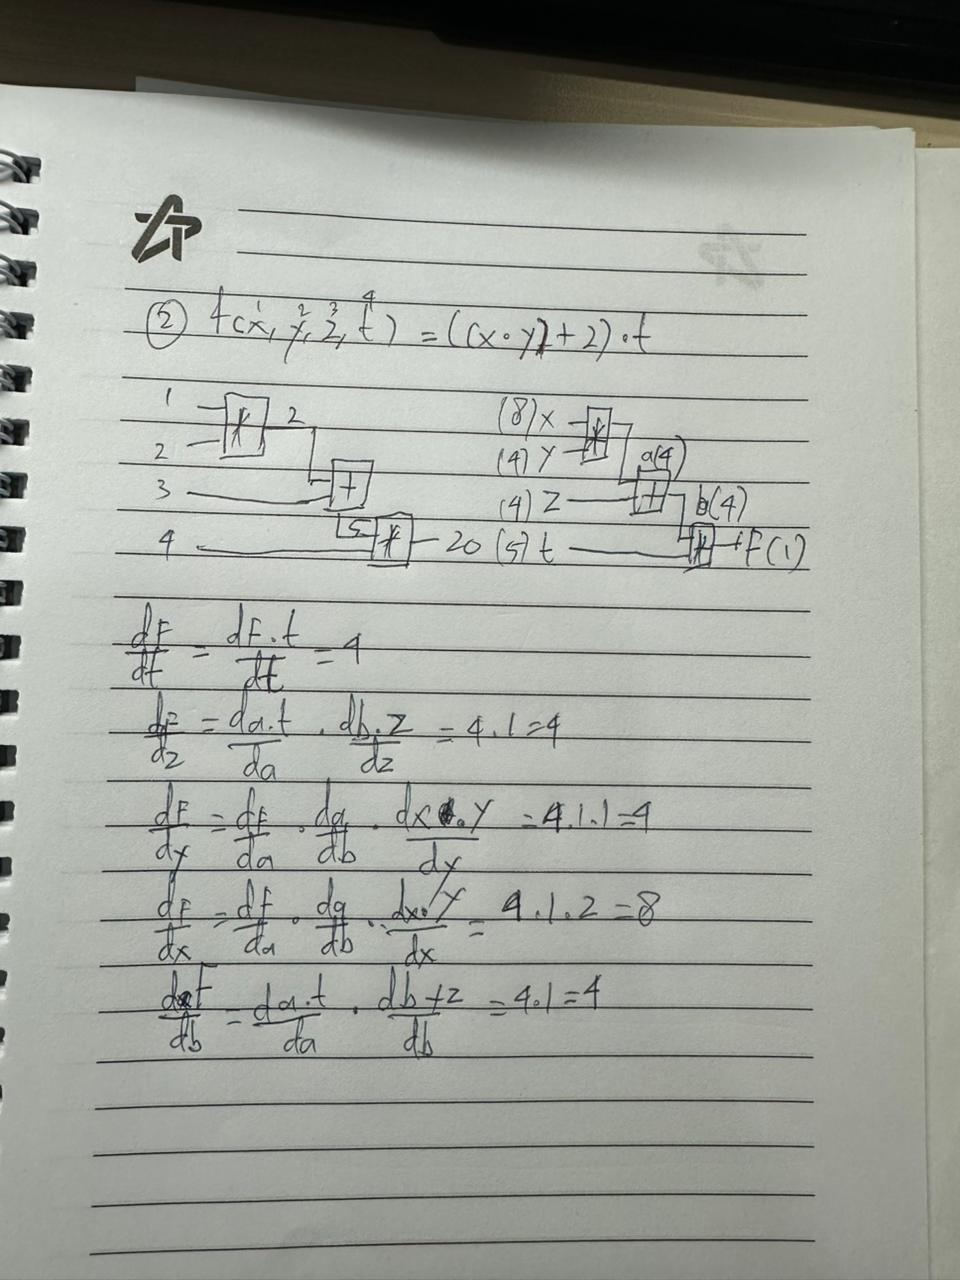 ② f(x, y, z, t) = ((x·y)+z)·t
1 2 3 4
1 2 (8) x
2 (4) y a(4)
3 + (4) z + b(4)
5
4 * 20 (5) t * F(1)
dF/dt = dF.t/dt = 4
dF/dz = da.t/da . db.z/dz = 4.1=4
dF/dy = dF/da . da/db . dx.y/dy = 4.1.1=4
dF/dx = dF/da . da/db . dx.y/dx = 4.1.2=8
dF/db = da.t/da . db+z/db = 4.1=4